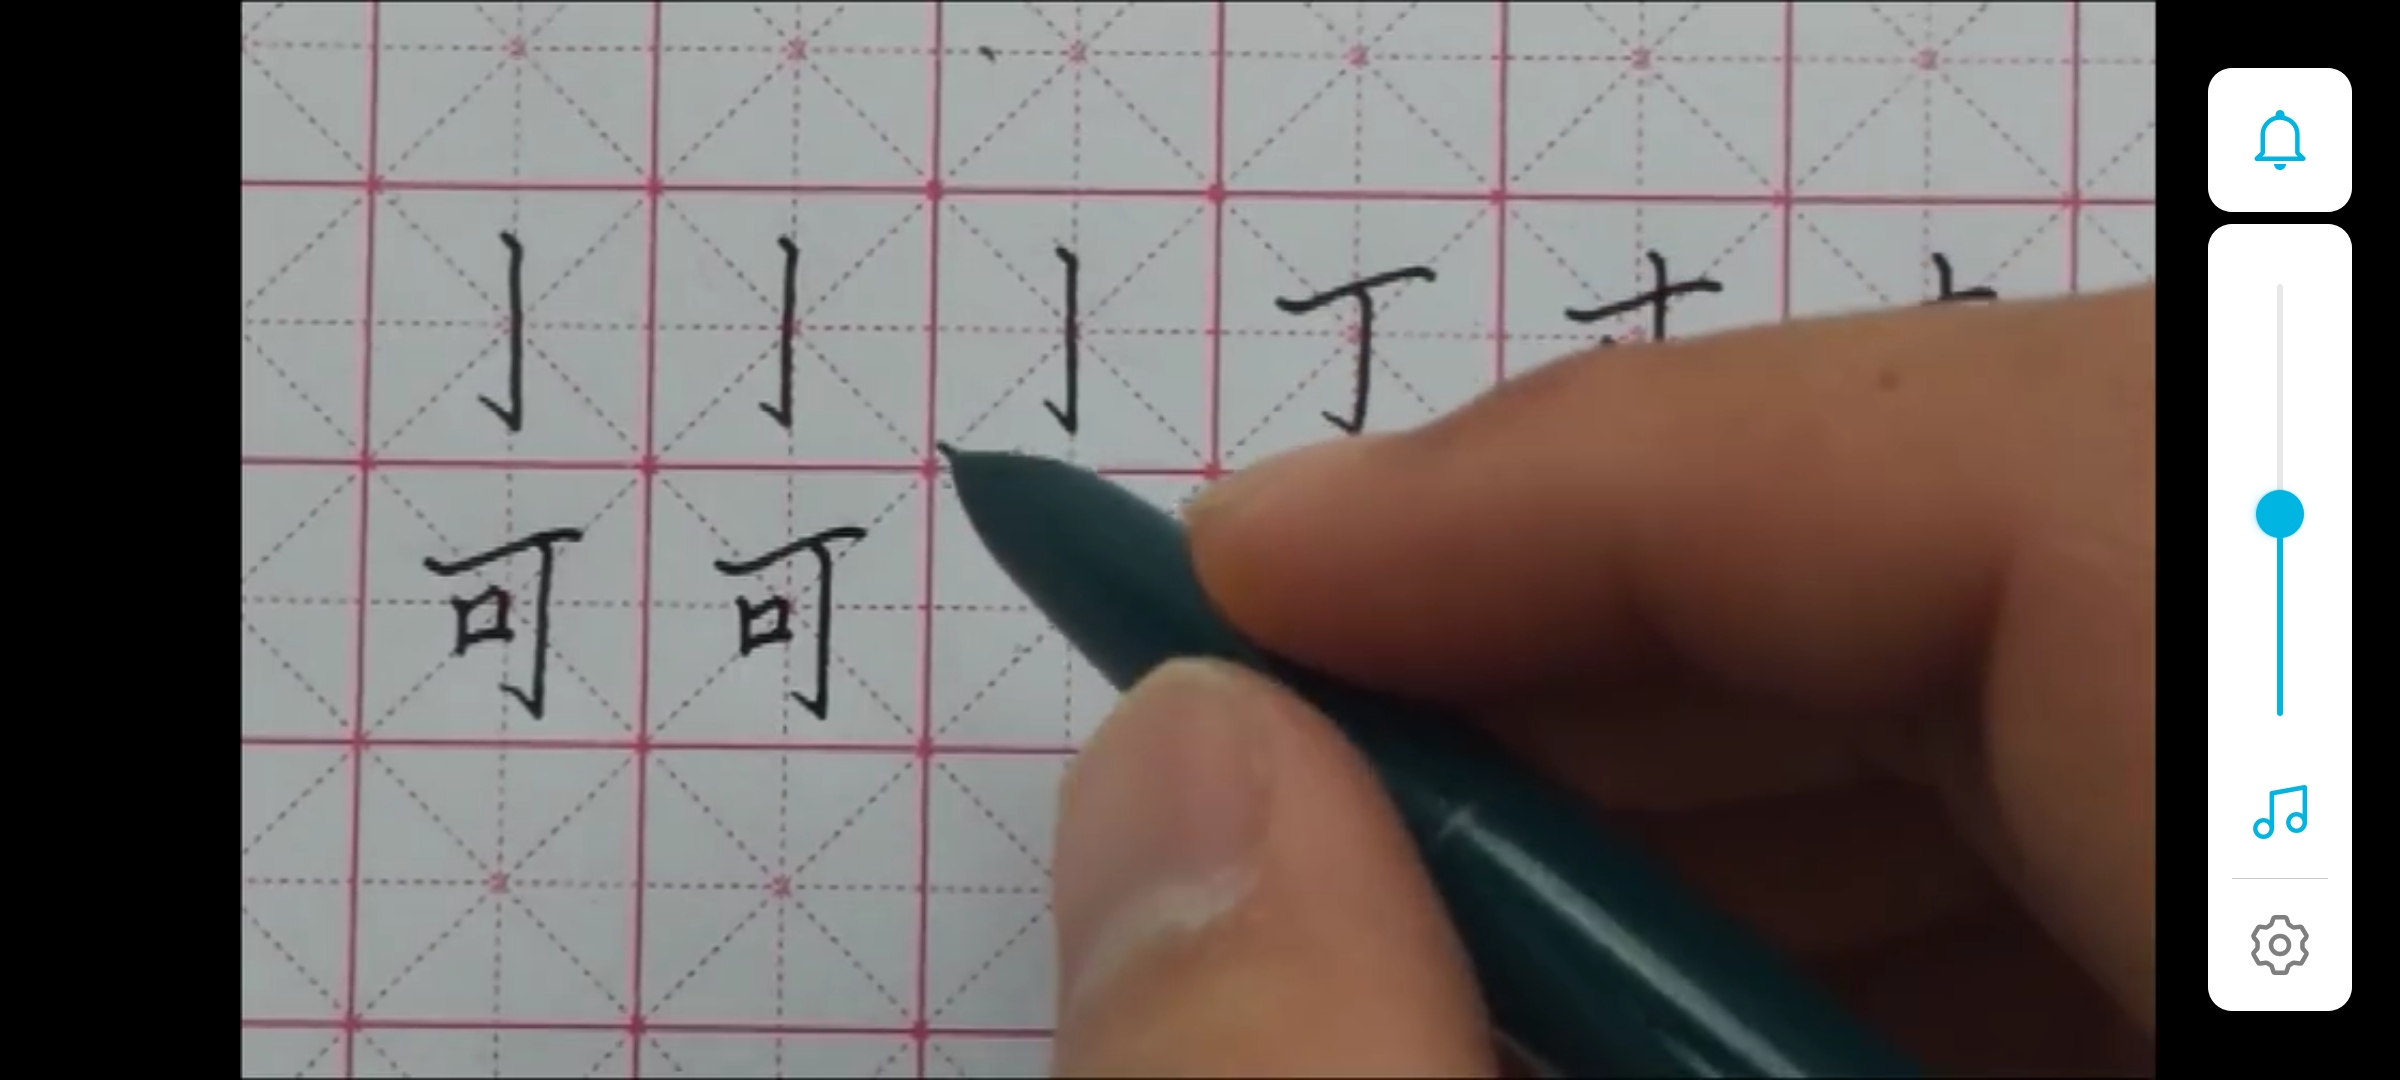 亅亅亅丁
可可